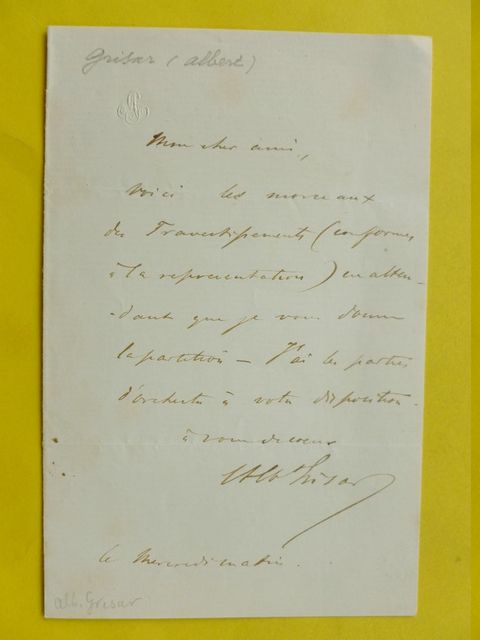 Grisar (albert)
AG
Mon cher ami,
voici les morceaux
des Travestissements (conformes
à la représentation) en atten-
-dant que je vous donne
la partition — J'ai les parties
d'orchestre à votre disposition.
à vous de coeur
Alb. Grisar
le Mercredi matin.
alb. Grisar